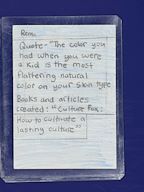 Remi
Quote - "The color you
had when you were
a kid is the most
flattering natural
color on your skin type
Books and articles
created: "Culture Fox:
How to cultivate a
lasting culture"